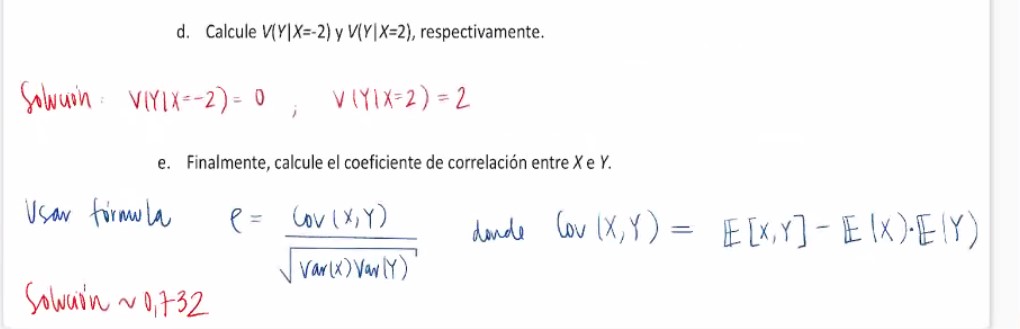 d. Calcule V(Y|X=-2) y V(Y|X=2), respectivamente.
Solución: V(Y|X=-2) = 0 ; V(Y|X=2) = 2
e. Finalmente, calcule el coeficiente de correlación entre X e Y.
Usar fórmula ρ = Cov(X,Y) / √Var(X)Var(Y) donde Cov(X,Y) = E[X,Y] - E(X)·E(Y)
Solución ~ 0,732